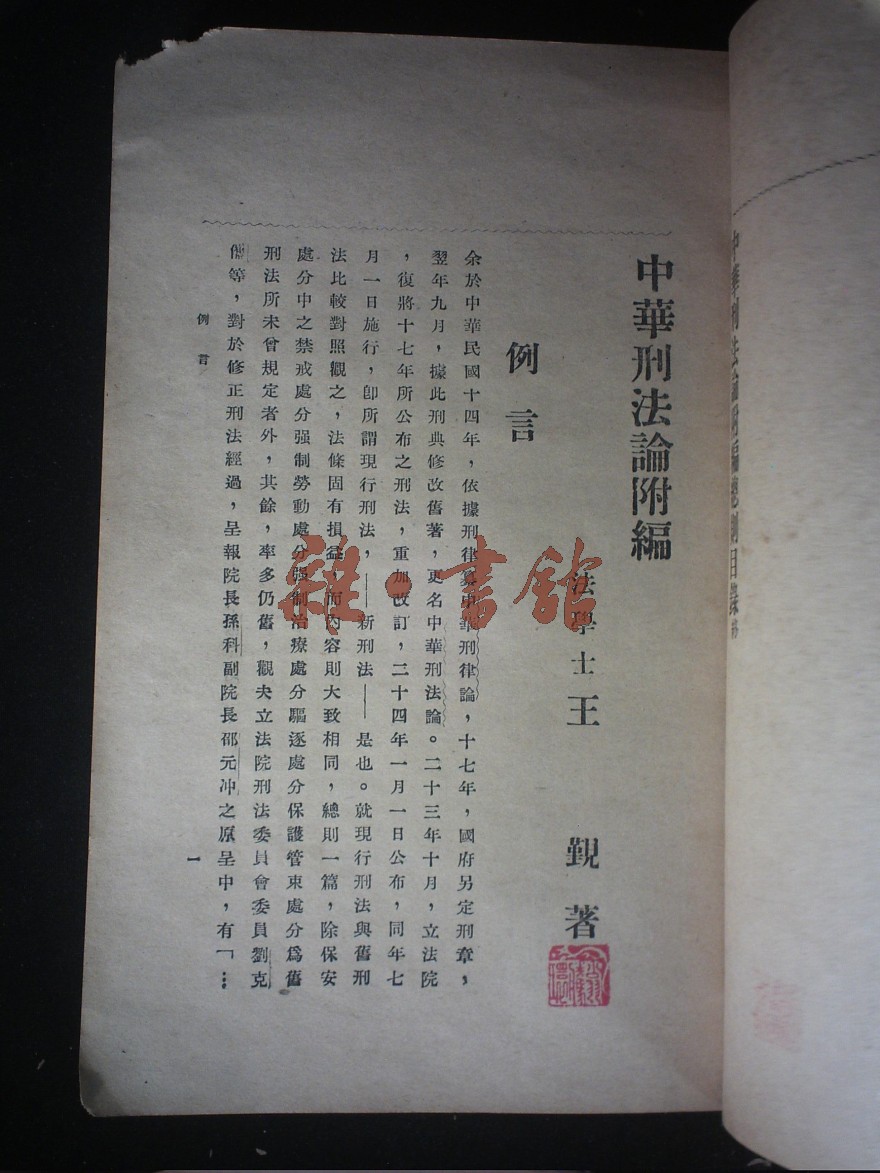 中華刑法論附編
法學士王　覲著
例言
余於中華民國十四年，依據刑律纂中華刑律論，十七年，國府另定刑章，
翌年九月，據此刑典修改舊著，更名中華刑法論。二十三年十月，立法院
，復將十七年所公布之刑法，重加改訂，二十四年一月一日公布，同年七
月一日施行，卽所謂現行刑法，——新刑法——是也。就現行刑法與舊刑
法比較對照觀之，法條固有損益，而內容則大致相同，總則一篇，除保安
處分中之禁戒處分强制勞動處分强制治療處分驅逐處分保護管束處分爲舊
刑法所未曾規定者外，其餘，率多仍舊，觀夫立法院刑法委員會委員劉克
儁等，對於修正刑法經過，呈報院長孫科副院長邵元冲之原呈中，有「…
例言
一
雜·書館
中華刑法論附編總則目錄